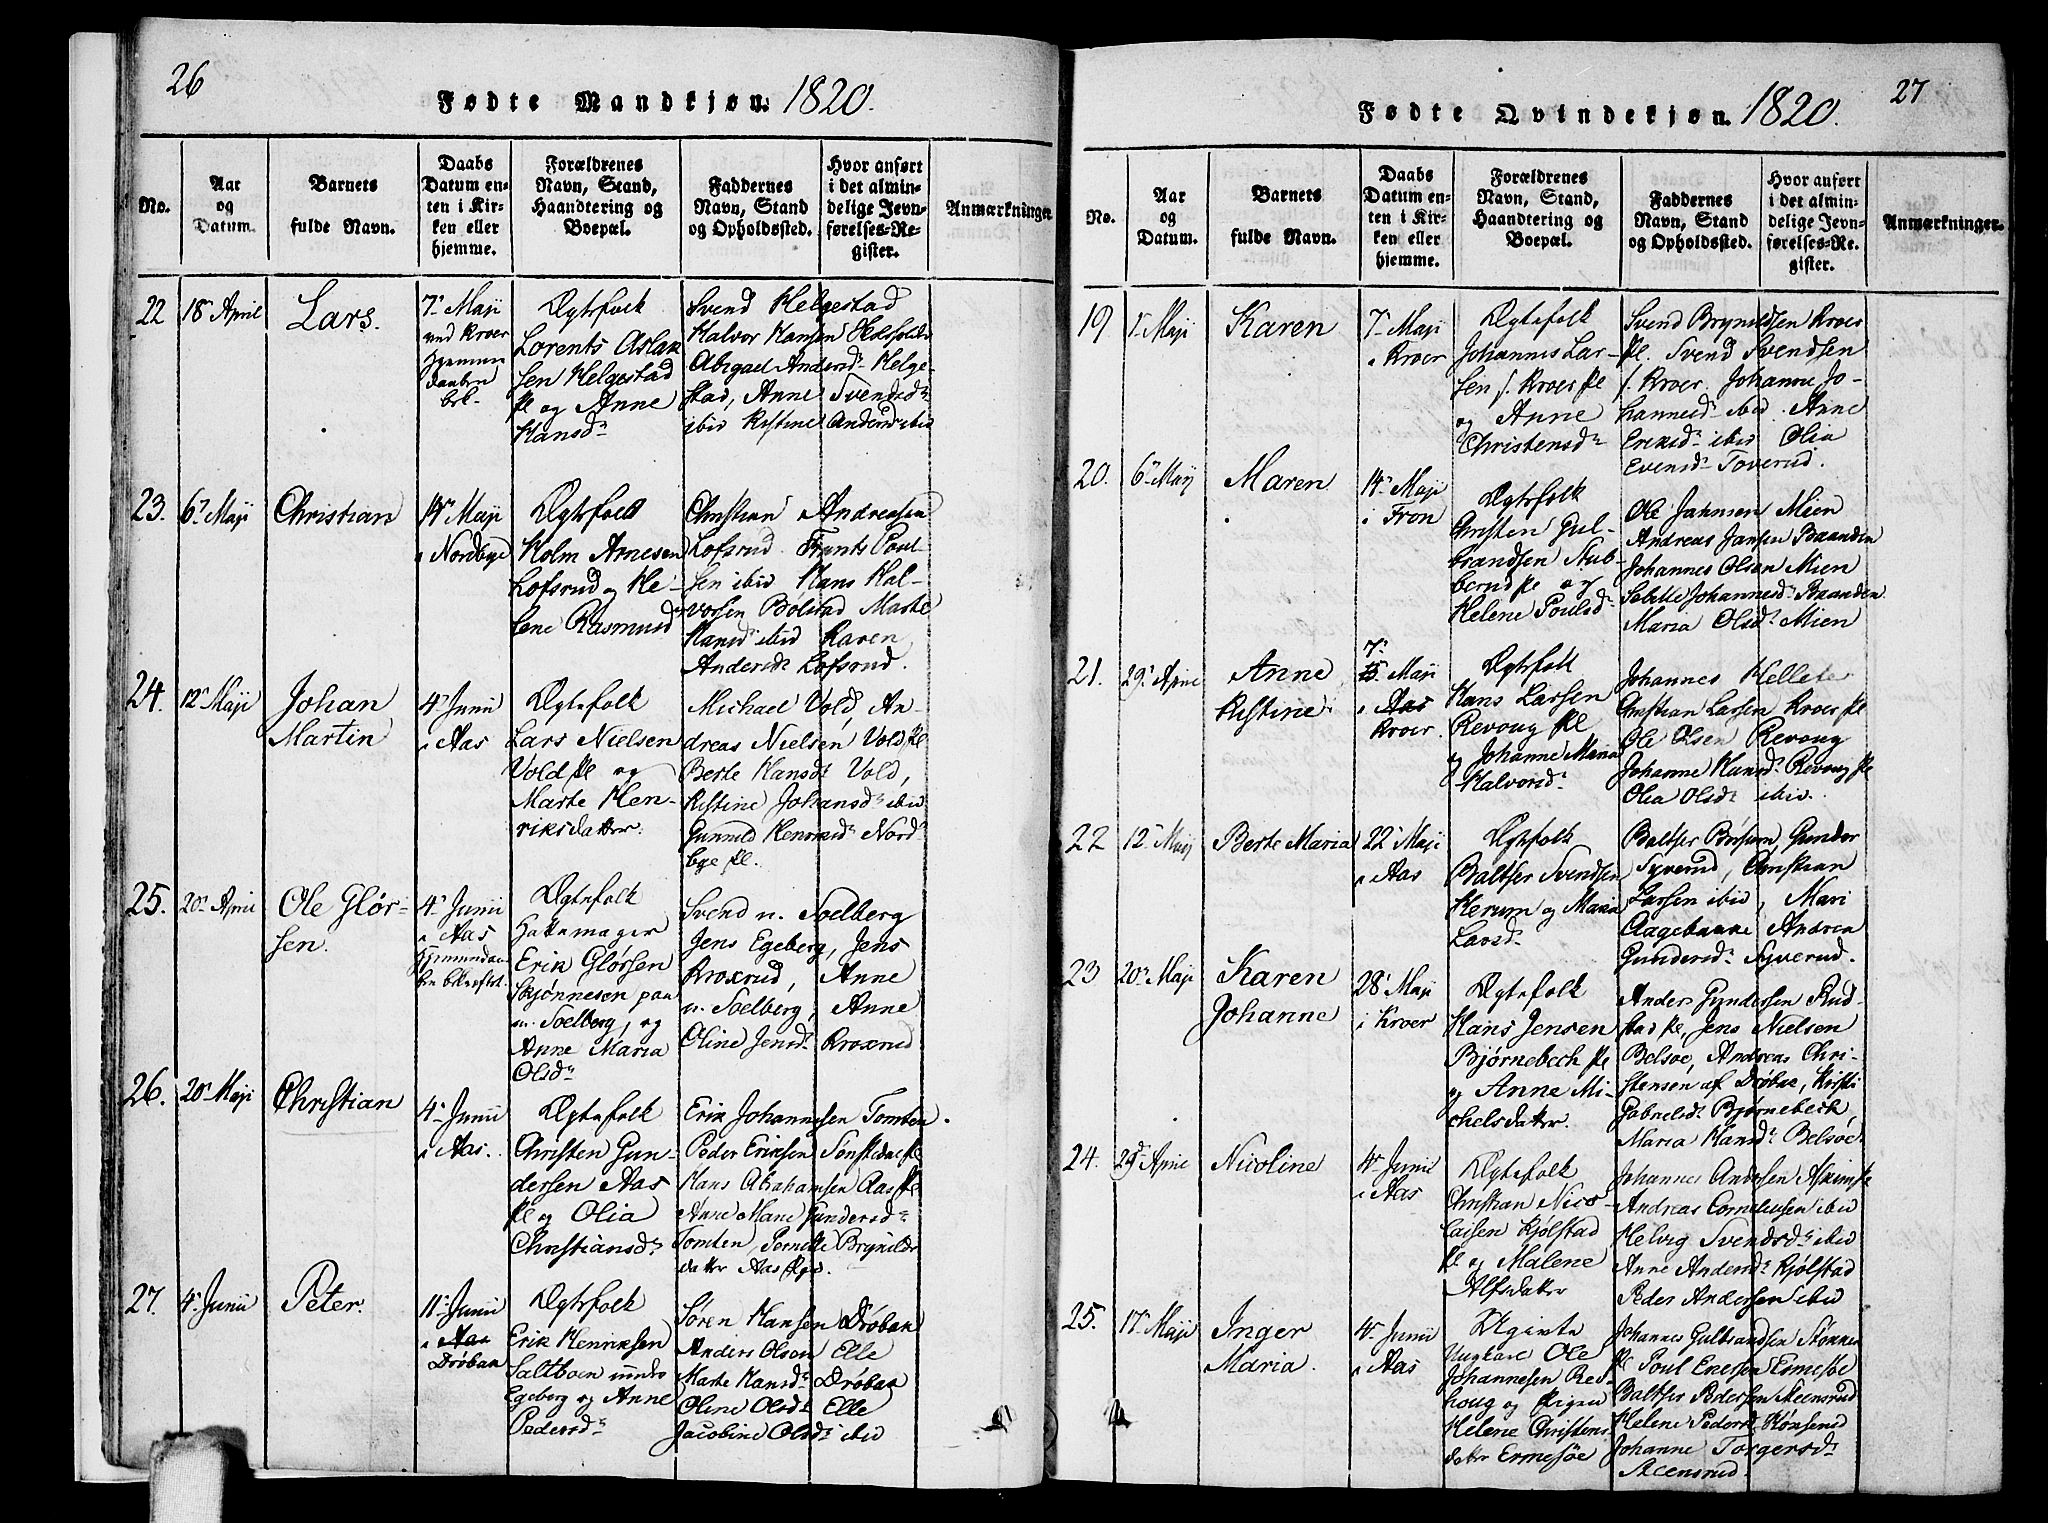 26
Fødte Mandkjøn. 1820.
No.
Aar
og
Datum.
Barnets
fulde Navn.
Daabs
Datum en-
ten i Kir-
ken eller
hjemme.
Forældrenes
Navn, Stand,
Haandtering og
Boepæl.
Faddernes
Navn, Stand
og Opholdssted.
Hvor anført
i det almin-
delige Jevn-
førelses-Re-
gister.
Anmærkninger
22
18 April
Lars.
7 Maji
ved Kroer
Ægtefolk
Lorents Aslak
sen Helgestad
Pl og Anne
Hansd
Svend Helgestad
Halvor Hansen
Abigael Andersd Helge-
stad, Anne Svendsd
ibid Kistine Andersd ibid
23.
6 Maji
Christian
14 Maji
i Nordbye
Ægtefolk
Holm Arnesen
Lofsrud og He-
lene Rasmusd
Christian Andreasen
Lofsrud Frants Poul-
sen ibid Hans Hal-
vorsen Bølstad Marte
Hansd ibid Karen
Andersd Lofsrud.
24.
12 Maji
Johan
Martin
4 Junii
i Aas
Ægtefolk
Lars Nielsen
Vold Pl og
Marte Hen-
riksdatter.
Michael Vold, An-
dreas Nielsen Vold Pl
Berte Hansd Vold,
Kistine Johansd ibid
Gunnild Henriksd Nord
bye Pl.
25.
20 April
Ole Glør-
sen.
4 Junii
i Aas
Ægtefolk
Hattemager
Erik Glørsen
Skjønnesen paa
n. Soelberg, og
Anne Maria
Olsd
Svend n. Soelberg
Jens Egeberg, Jens
Kroxrud, Anne
n. Soelberg, Anne
Oline Jensd Kroxrud
26.
20 Maji
Christian
4 Junii
i Aas.
Ægtefolk
Christen Gun-
dersen Aas
Pl og Olia
Christiansd
Erik Johannesen Tomten
Peder Eriksen Sønstebøe Pl
Hans Abrahamsen Aas Pl
Anne Marie Gundersd
Tomten, Pernille Brynilds
datter Aas
27.
4 Junii
Peter.
11 Junii
i Aas
Drøbak
Ægtefolk
Erik Henriksen
Saltboen under
Egeberg og Anne
Pedersd
Søren Hansen Drøbak
Anders Olsen Elle
Marte Hansd Drøbak
Oline Olsd Elle
Jacobine Olsd ibid
27
Fødte Qvindekjøn. 1820.
No.
Aar
og
Datum.
Barnets
fulde Navn.
Daabs
Datum en-
ten i Kir-
ken eller
hjemme.
Forældrenes
Navn, Stand,
Haandtering og
Boepæl.
Faddernes
Navn, Stand
og Opholdssted.
Hvor anført
i det almin-
delige Jevn-
førelses-Re-
gister.
Anmærkninger.
19
1 Maji
Karen
7 Maji
i Kroer
Ægtefolk
Johannes Lar-
sen s. Kroer Pl
og Anne
Christensd
Svend Brynildsen Kroer
Pl. Svend Svendsen
s. Kroer. Johanne Jo-
hannesd ibid. Anne
Eriksd ibid Olia
Evensd Toverud.
20.
6 Maij
Maren
14 Maji
i Fron
Ægtefolk
Christen Gul-
brandsen Stub-
berud Pl og
Helene Poulsd
Ole Jahnsen Mien
Andreas Jansen Braanden
Johannes Olsen Mien
Sibille Johannesd Braanden
Maria Olsd Mien
21.
29 April
Anne
Kistine
7
Maji
i Aas
Kroer.
Ægtefolk
Hans Larsen
Revoug Pl
og Johanne Maria
Halvorsd
Johannes Kelleter
Christian Larsen Kroer Pl
Ole Olsen Revoug
Johanne Hansd Revoug Pl
Olia Olsd ibid.
22
12 Maij
Berte Maria
22 Maji
i Aas
Ægtefolk
Baltser Svendsen
Herum og Maria
Larsd
Baltser Børsum, Gunder
Syverud, Christian
Larsen ibid, Mari
Aagebanne Andrea
Gundersd Syverud.
23
20 Maji
Karen
Johanne
28 Maji
i Kroer
Ægtefolk
Hans Jensen
Bjørnebech Pl
og Anne Mi-
chelsdatter.
Anders Gundersen Rud-
stad Pl, Jens Nielsen
Belsøe, Andreas Chri-
stensen af Drøbak, Kisti
Gabrielsd Bjørnebeck,
Maria Hansd Belsøe.
24.
29 April
Nicoline
4 Junii
i Aas
Ægtefolk
Christian Nico
laisen Kjølstad
Pl og Malene
Alfsdatter
Johannes Andersen Askim Pl
Andreas Corneliussen ibid
Helvig Svendsd ibid
Anne Andersd Kjølstad
Peder Andersen ibid
25.
17 Maji
Inger
Maria.
4 Junii
i Aas
Ugivte
Ungkarl Ole
Johannesen Red-
houg og Pigen
Helene Christens
datter Ermesøe
Johannes Gulbrandsen Støkken
Pl Poul Enersen Ermesøe
Baltser Pedersen Meensrud
Helene Pedersd Hønserud
Johanne Torgersd
Meensrud.